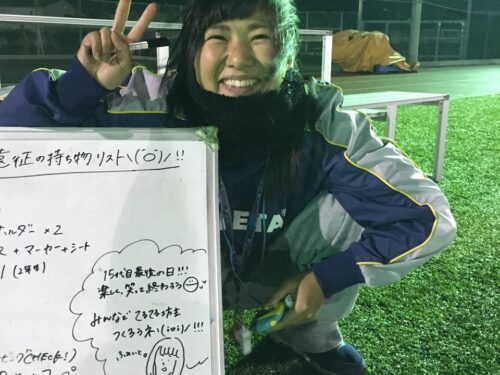 遠征の持ち物リスト\(^o^)/!!
ホルダー ×2
ス + マーカー + シート
(2年生)
15代目最後の日!!!
楽しく、笑って終わろう
みんなで てるてる坊主
つくろうネ\(^o^)/!!!
CHECK!)
ETA